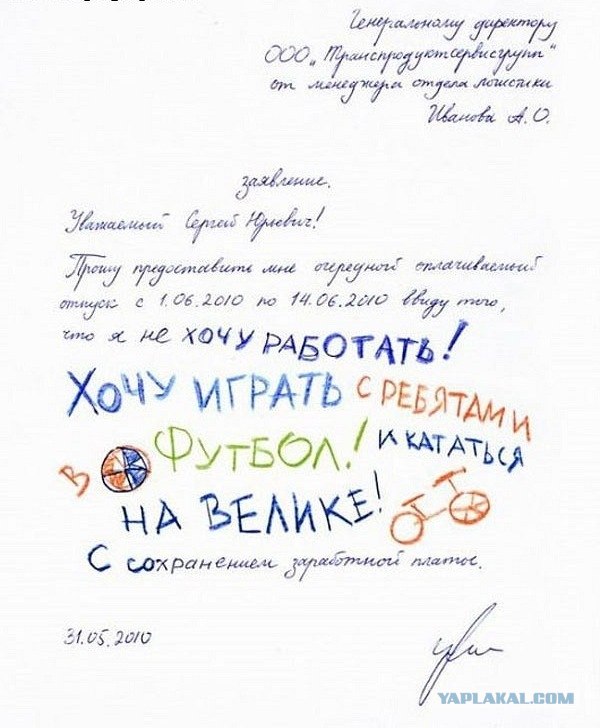 Генеральному директору
ООО „Транспродуктсервисгрупп"
от менеджера отдела логистики
Иванова А.О.
заявление.
Уважаемый Сергей Юрьевич!
Прошу предоставить мне очередной оплачиваемый
отпуск с 1.06.2010 по 14.06.2010 ввиду того,
что я не хочу РАБОТАТЬ!
ХОЧУ ИГРАТЬ С РЕБЯТАМИ
В ФУТБОЛ! И КАТАТЬСЯ
НА ВЕЛИКЕ!
С сохранением заработной платы.
31.05.2010
YAPLAKAL.COM